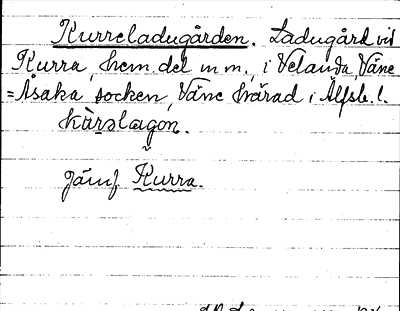 Kurreladugården. Ladugård vid
Kurra, hem.del m m., i Velanda, Väne
=Åsaka socken, Väne härad i Älfsb. l.
Kàrəlagon.
Jämf Kurra.